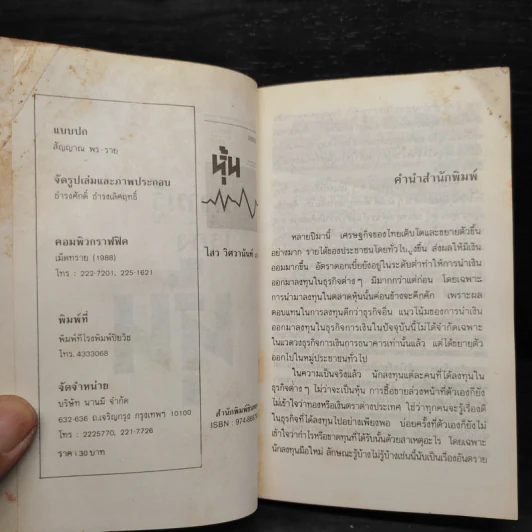 แบบปก
สัญญาณ พร-ราย
จัดรูปเล่มและภาพประกอบ
ธำรงศักดิ์ ธำรงเลิศฤทธิ์
คอมพิวกราฟฟิค
เม็ดทราย (1988)
โทร : 222-7201, 225-1621
พิมพ์ที่
พิมพ์ที่โรงพิมพ์ปิยวัธ
โทร. 4333068
จัดจำหน่าย
บริษัท นานมี จำกัด
632-636 ถ.เจริญกรุง กรุงเทพฯ 10100
โทร : 2225770, 221-7726
ราคา 30 บาท
หุ้น
ไสว วิศวานันท์
ISBN : 974-866
คำนำสำนักพิมพ์
หลายปีมานี้ เศรษฐกิจของไทยเติบโตและขยายตัวขึ้น
อย่างมาก รายได้ของประชาชนโดยทั่วไปสูงขึ้น ส่งผลให้มีเงิน
ออมมากขึ้น อัตราดอกเบี้ยยังอยู่ในระดับต่ำทำให้การนำเงิน
ออมมาลงทุนในธุรกิจต่าง ๆ มีมากกว่าแต่ก่อน โดยเฉพาะ
การนำมาลงทุนในตลาดหุ้นนั้นค่อนข้างจะคึกคัก เพราะผล
ตอบแทนในการลงทุนดีกว่าธุรกิจอื่น แนวโน้มของการนำเงิน
ออมมาลงทุนในธุรกิจการเงินในปัจจุบันนี้ไม่ได้จำกัดเฉพาะ
ในแวดวงธุรกิจการเงินการธนาคารเท่านั้นแล้ว แต่ได้ขยายตัว
ออกไปในหมู่ประชาชนทั่วไป
ในความเป็นจริงแล้ว นักลงทุนแต่ละคนที่ได้ลงทุนใน
ธุรกิจต่างๆ ไม่ว่าจะเป็นหุ้น การซื้อขายล่วงหน้าที่ตัวเองก็ยังไม่
เข้าใจว่าทองหรือเงินตราต่างประเทศ ใช่ว่าทุกคนจะรู้เรื่องดี
ในธุรกิจที่ได้ลงทุนไปอย่างเพียงพอ บ่อยครั้งที่ตัวเองก็ยังไม่
เข้าใจว่ากำไรหรือขาดทุนที่ได้รับนั้นด้วยสาเหตุอะไร โดยเฉพาะ
นักลงทุนมือใหม่ ลักษณะรู้บ้างไม่รู้บ้างเช่นนี้นับเป็นเรื่องอันตราย